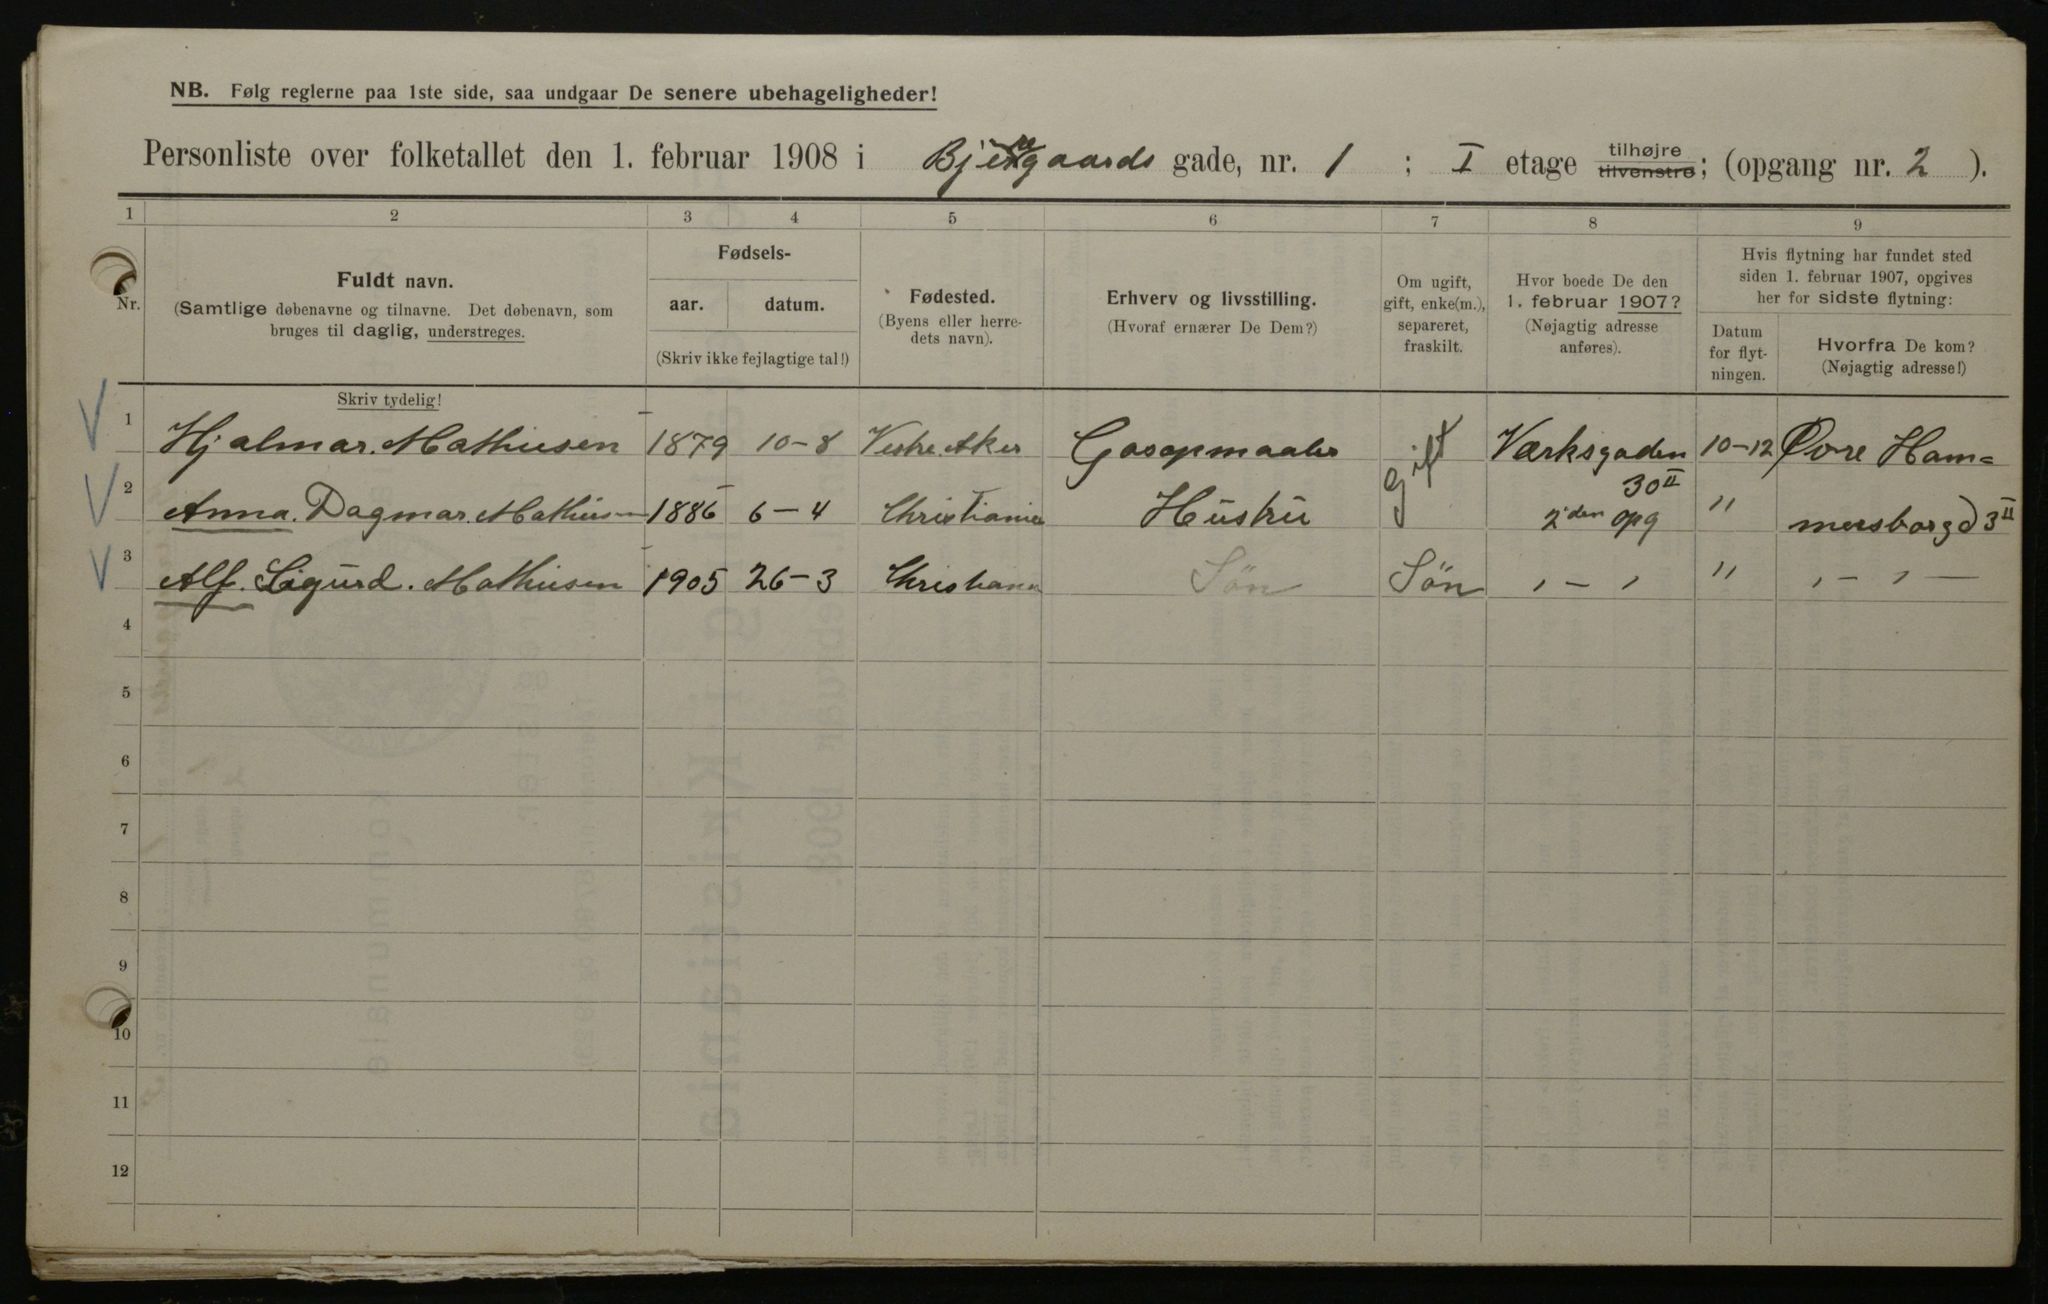 NB. Følg reglerne paa 1ste side, saa undgaar De senere ubehageligheder!
Personliste over folketallet den 1. februar 1908 i Bjerregaards gade, nr. 1 ; I etage tilhøjre tilvenstre; (opgang nr. 2 ).
1 2 3 4 5 6 7 8 9
Nr.
Fuldt navn.
(Samtlige døbenavne og tilnavne. Det døbenavn, som
bruges til daglig, understreges.
Skriv tydelig!
Fødsels-
aar. datum.
(Skriv ikke fejlagtige tal!)
Fødested.
(Byens eller herre-
dets navn).
Erhverv og livsstilling.
(Hvoraf ernærer De Dem?)
Om ugift,
gift, enke(m.),
separeret,
fraskilt.
Hvor boede De den
1. februar 1907?
(Nøjagtig adresse
anføres).
Hvis flytning har fundet sted
siden 1. februar 1907, opgives
her for sidste flytning:
Datum
for flyt-
ningen.
Hvorfra De kom?
(Nøjagtig adresse!)
1 Hjalmar. Mathiesen 1879 10-8 Vestre Aker Gasopmaaler Gift Værksgaden 10-12 Øvre Ham=
30 II
2 Anna. Dagmar. Mathiesen 1886 6-4 Christiania Hustru 2den opg " mersborgd 3 II
3 Alf. Sigurd. Mathiesen 1905 26-3 Christiania Søn Søn , - , " , - , -
4
5
6
7
8
9
10
11
12